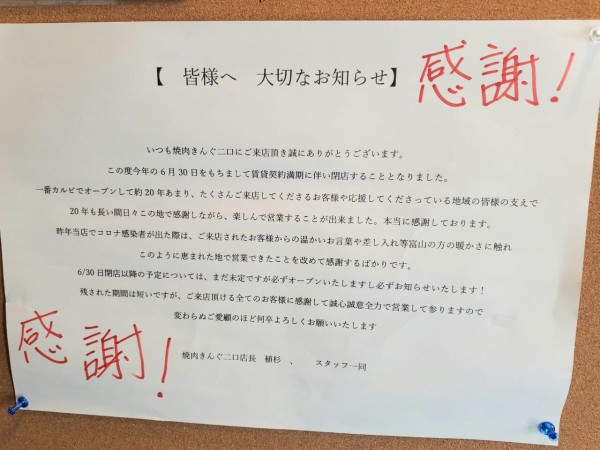 【　皆様へ　大切なお知らせ】
感謝!
いつも焼肉きんぐ二口にご来店頂き誠にありがとうございます。
この度今年の6月30日をもちまして賃貸契約満期に伴い閉店することとなりました。
一番カルビでオープンして約20年あまり、たくさんご来店してくださるお客様や応援してくださっている地域の皆様の支えで
20年も長い間日々この地で感謝しながら、楽しんで営業することが出来ました。本当に感謝しております。
昨年当店でコロナ感染者が出た際は、ご来店されたお客様からの温かいお言葉や差し入れ等富山の方の暖かさに触れ
このように恵まれた地で営業できたことを改めて感謝するばかりです。
6/30日閉店以降の予定については、まだ未定ですが必ずオープンいたしますし必ずお知らせいたします！
残された期間は短いですが、ご来店頂ける全てのお客様に感謝して誠心誠意全力で営業して参りますので
変わらぬご愛顧のほど何卒よろしくお願いいたします
焼肉きんぐ二口店長　植杉　、　スタッフ一同
感謝!